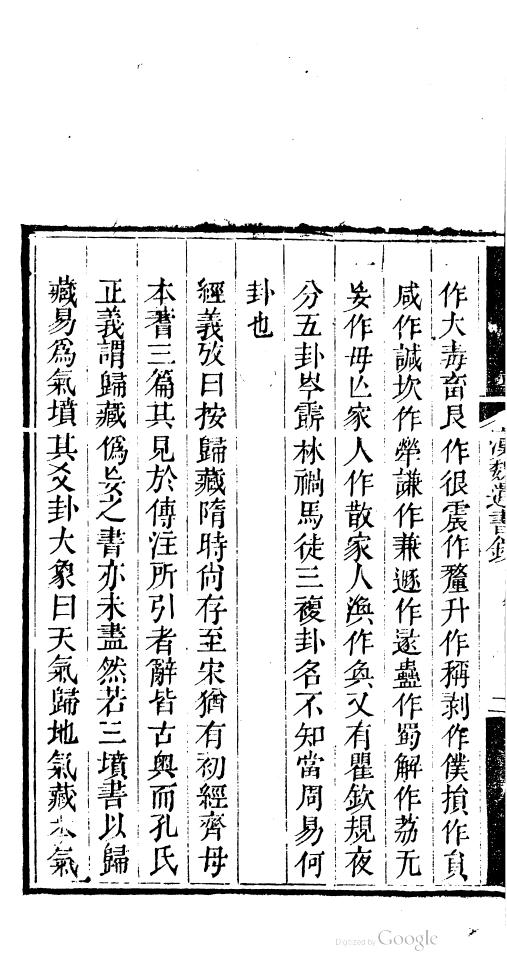 作大毒畜艮作很震作釐升作稱剥作僕損作員
咸作諴坎作犖謙作兼遯作遂蠱作蜀解作荔无
妄作毋亾家人作散家人渙作奐又有瞿欽規夜
分五卦岑𩆜林禍馬徒三複卦名不知當周易何
卦也
經義攷曰按歸藏隋時尙存至宋猶有初經齊母
本蓍三篇其見於傳注所引者辭皆古奥而孔氏
正義謂歸藏僞妄之書亦未盡然若三墳書以歸
藏易爲氣墳其爻卦大象曰天氣歸地氣藏木氣
漢魏遺書鈔
二
Digitized by Google